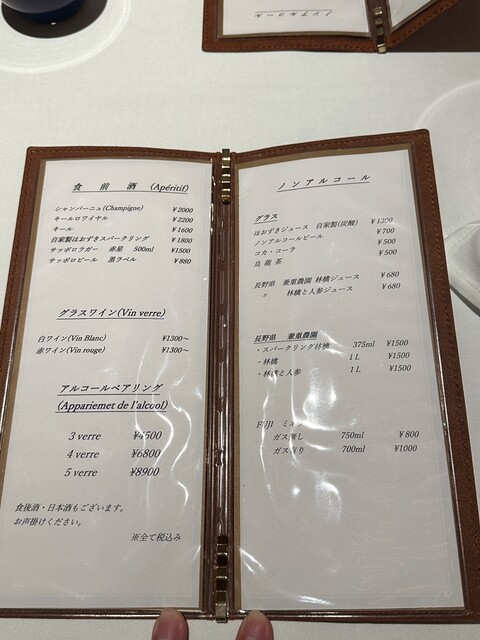 ノンアルコール
食 前 酒 (Apéritif)
シャンパーニュ(Champigne) ¥2000
キールロワイヤル ¥2200
キール ¥1600
自家製ほおずきスパークリング ¥1800
サッポロラガー 赤星 500ml ¥1500
サッポロビール 黒ラベル ¥880
グラスワイン(Vin verre)
白ワイン(Vin Blanc) ¥1300~
赤ワイン(Vin rouge) ¥1300~
アルコールペアリング
(Appariemet de l'alcool)
3 verre ¥4500
4 verre ¥6800
5 verre ¥8900
食後酒・日本酒もございます。
お声掛けください。
※全て税込み
ノンアルコール
グラス
ほおずきジュース 自家製(炭酸) ¥1200
ノンアルコールビール ¥700
コカ・コーラ ¥500
烏龍茶 ¥500
長野県 兼重農園 林檎ジュース ¥680
〃 林檎と人参ジュース ¥680
長野県 兼重農園
・スパークリング林檎 375ml ¥1500
・林檎 1L ¥1500
・林檎と人参 1L ¥1500
FUJI
ガス無し 750ml ¥800
ガス有り 700ml ¥1000